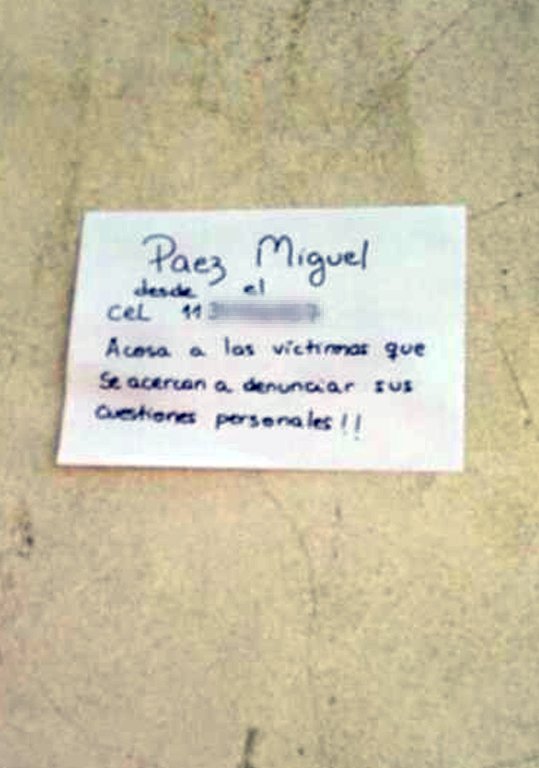 Paez Miguel
desde el
Cel 113
Acosa a las víctimas que
Se acercan a denunciar sus
Cuestiones personales!!